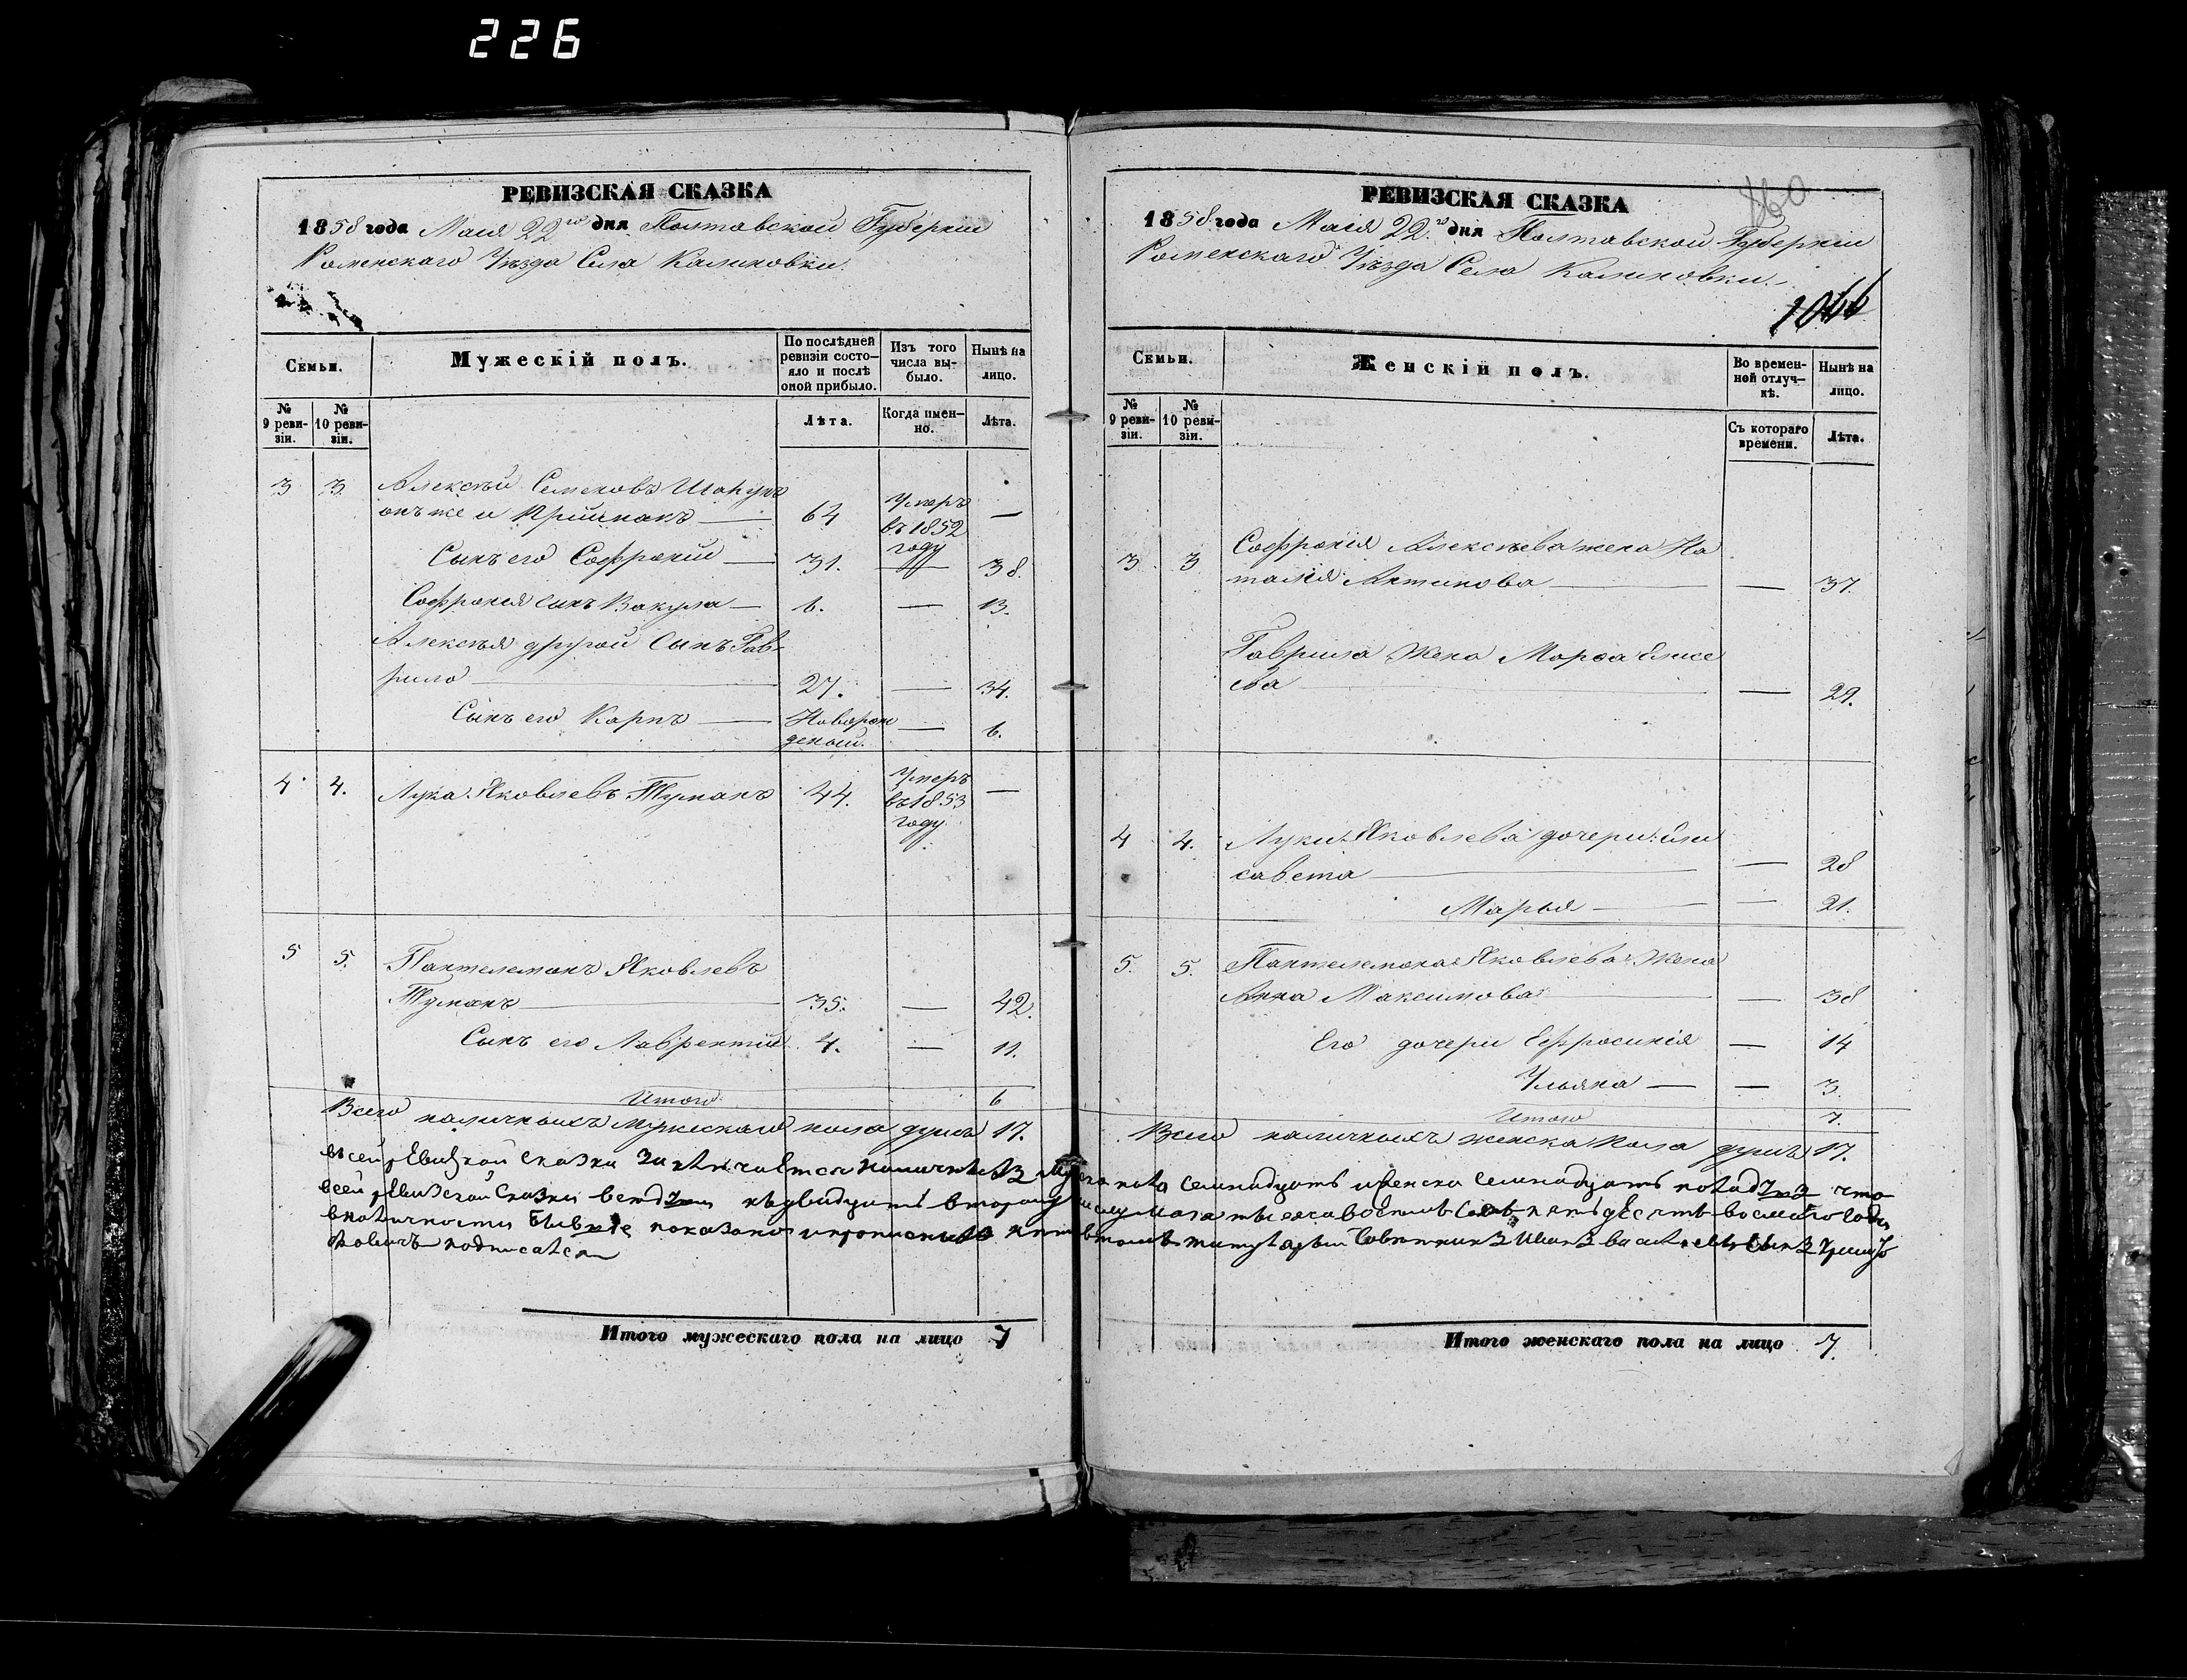 226
РЕВИЗСКАЯ СКАЗКА
1858 года Маія 22го дня Полтавской Губерніи
Роменскаго Уѣзда Села Калиновки.
Семьи.
Мужескій полъ.
По послѣдней ревизіи состояло и послѣ оной прибыло.
Изъ того числа выбыло.
Нынѣ на лицо.
№ 9 ревизіи.
№ 10 ревизіи.
Лѣта.
Когда именно.
Лѣта.
3 3 Алексѣй Семеновъ
онъ же и 64 Умеръ въ 1852 году —
Сынъ его Софроній — 31. — 38.
Софронія сынъ Вакула — 6. — 13.
Алексѣя другой Сынъ Гав-
рило — 27. — 34.
Сынъ его Карпъ — Новорожденый. — 6.
4 4. Лука Яковлевъ Туманъ 44. Умеръ въ 1853 году —
5 5. Пантелемонъ Яковлевъ
Туманъ — 35. — 42.
Сынъ его Лаврентій 4. — 11.
Итого 6
Всего наличныхъ мужескаго пола душъ 17.
Итого мужескаго пола на лицо 7
РЕВИЗСКАЯ СКАЗКА
1858 года Маія 22го дня Полтавской Губерніи
Роменскаго Уѣзда Села Калиновки.
1066
Семьи.
Женскій полъ.
Во временной отлучкѣ.
Нынѣ на лицо.
№ 9 ревизіи.
№ 10 ревизіи.
Съ котораго времени.
Лѣта.
3 3 Софронія Алексѣева жена На
талія Антинова — — 37.
Гаврила жена Марѳа Елисе
ева — — 29.
4 4. Луки Яковлева дочери: Ели
савета — — 28
Марья — — 21.
5. 5. Пантелемона Яковлева Жена
Анна Максимова — — 38
Его дочери Ефросинія — 14
Ульяна — — 3.
Итого 7.
Всего наличныхъ женска пола душъ 17.
всей ревизской сказки заключается мужеска пола семнадцать и женска семнадцать что
всей ревизской сказки двадцать второму числу мая тысяча восемь сотъ пятьдесятъ восмаго года
показано титулярный Советникъ Иванъ сынъ
подписался
Итого женскаго пола на лицо 7.